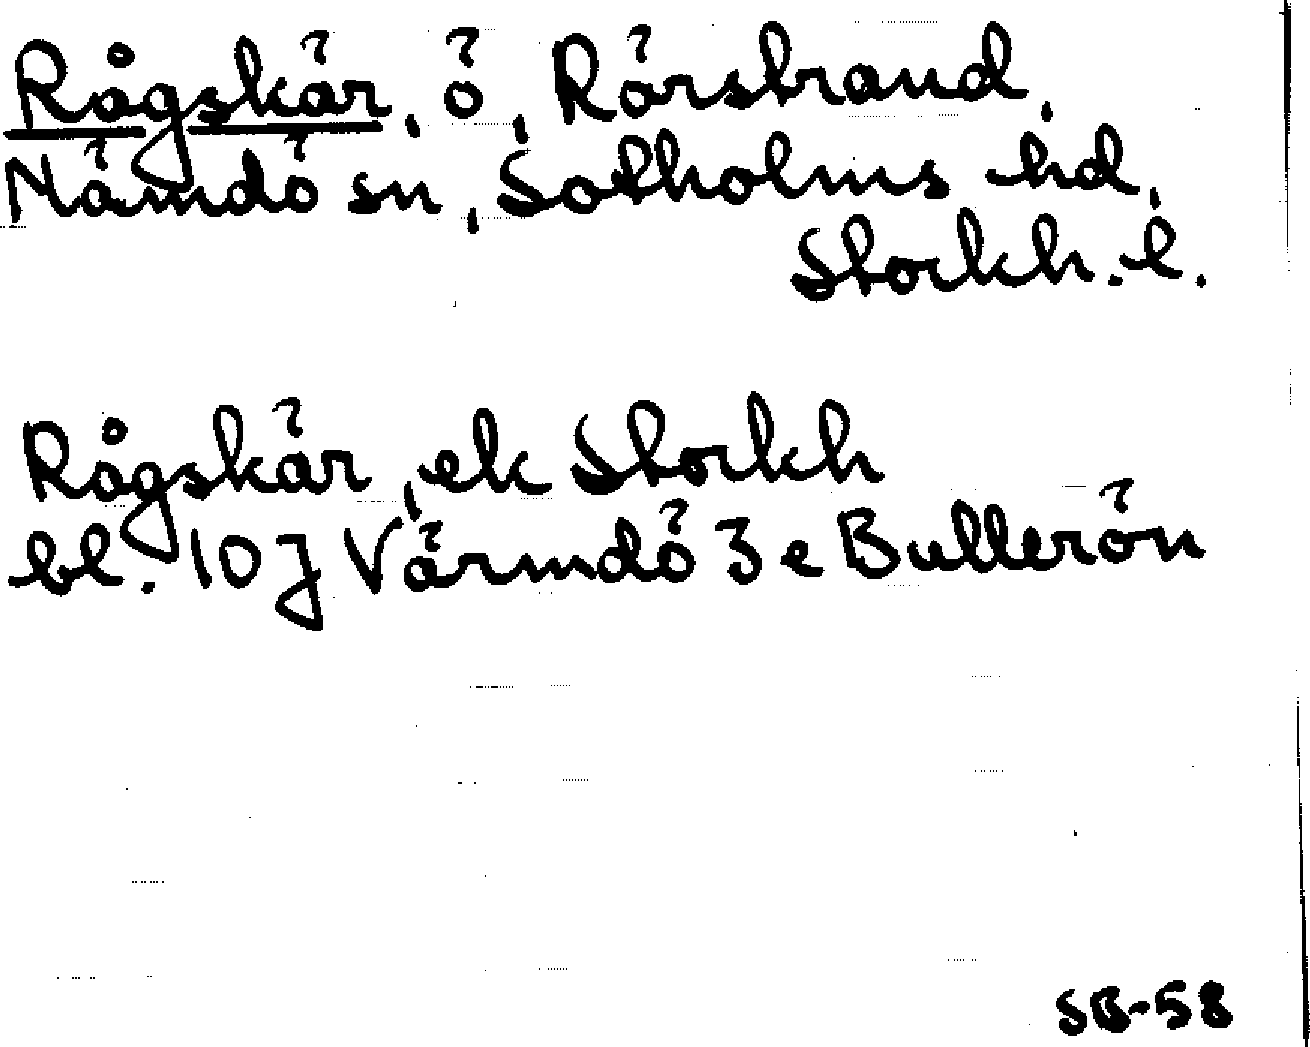 Rågskär, ö, Rörstrand,
Nämdö sn, Sotholms hd,
Stockh. l.
Rågskär, ek Stockh
bl. 10J Värmdö 3e Bullerön
SB-58